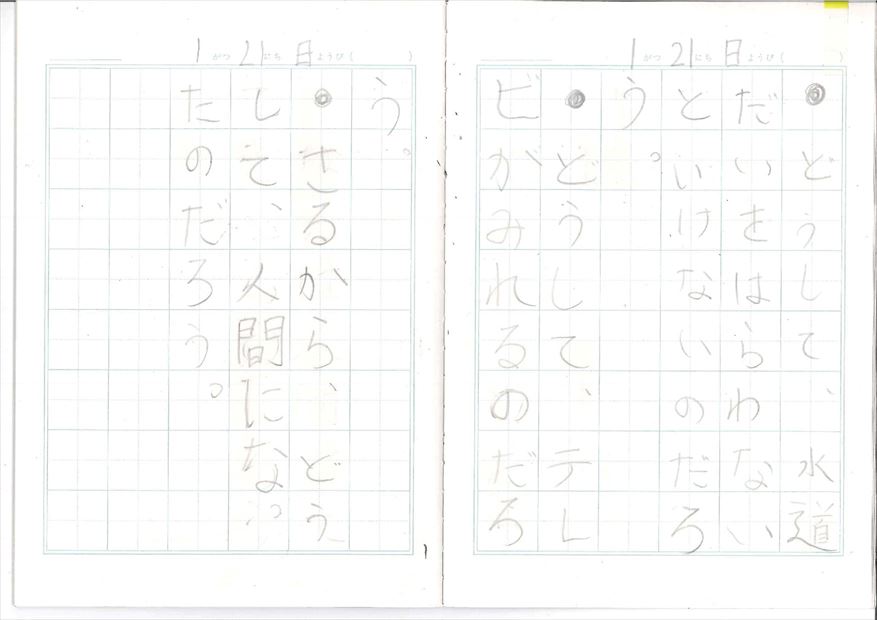 1がつ21にち日ようび( )
◎どうして、水道
だいをはらわない
といけないのだろ
う。
◎どうして、テレ
ビがみれるのだろ
1がつ21にち日ようび( )
う。
◎さるから、どう
して、人間になっ
たのだろう。